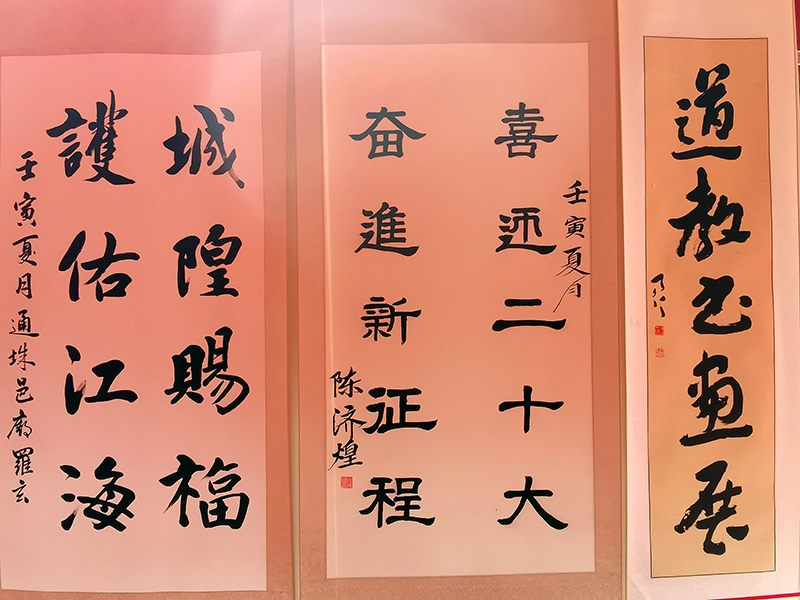 道教书畫展
壬寅夏月
喜迎二十大
奋進新征程
陈济煌
城隍賜福
護佑江海
壬寅夏月通珠邑廟羅玄